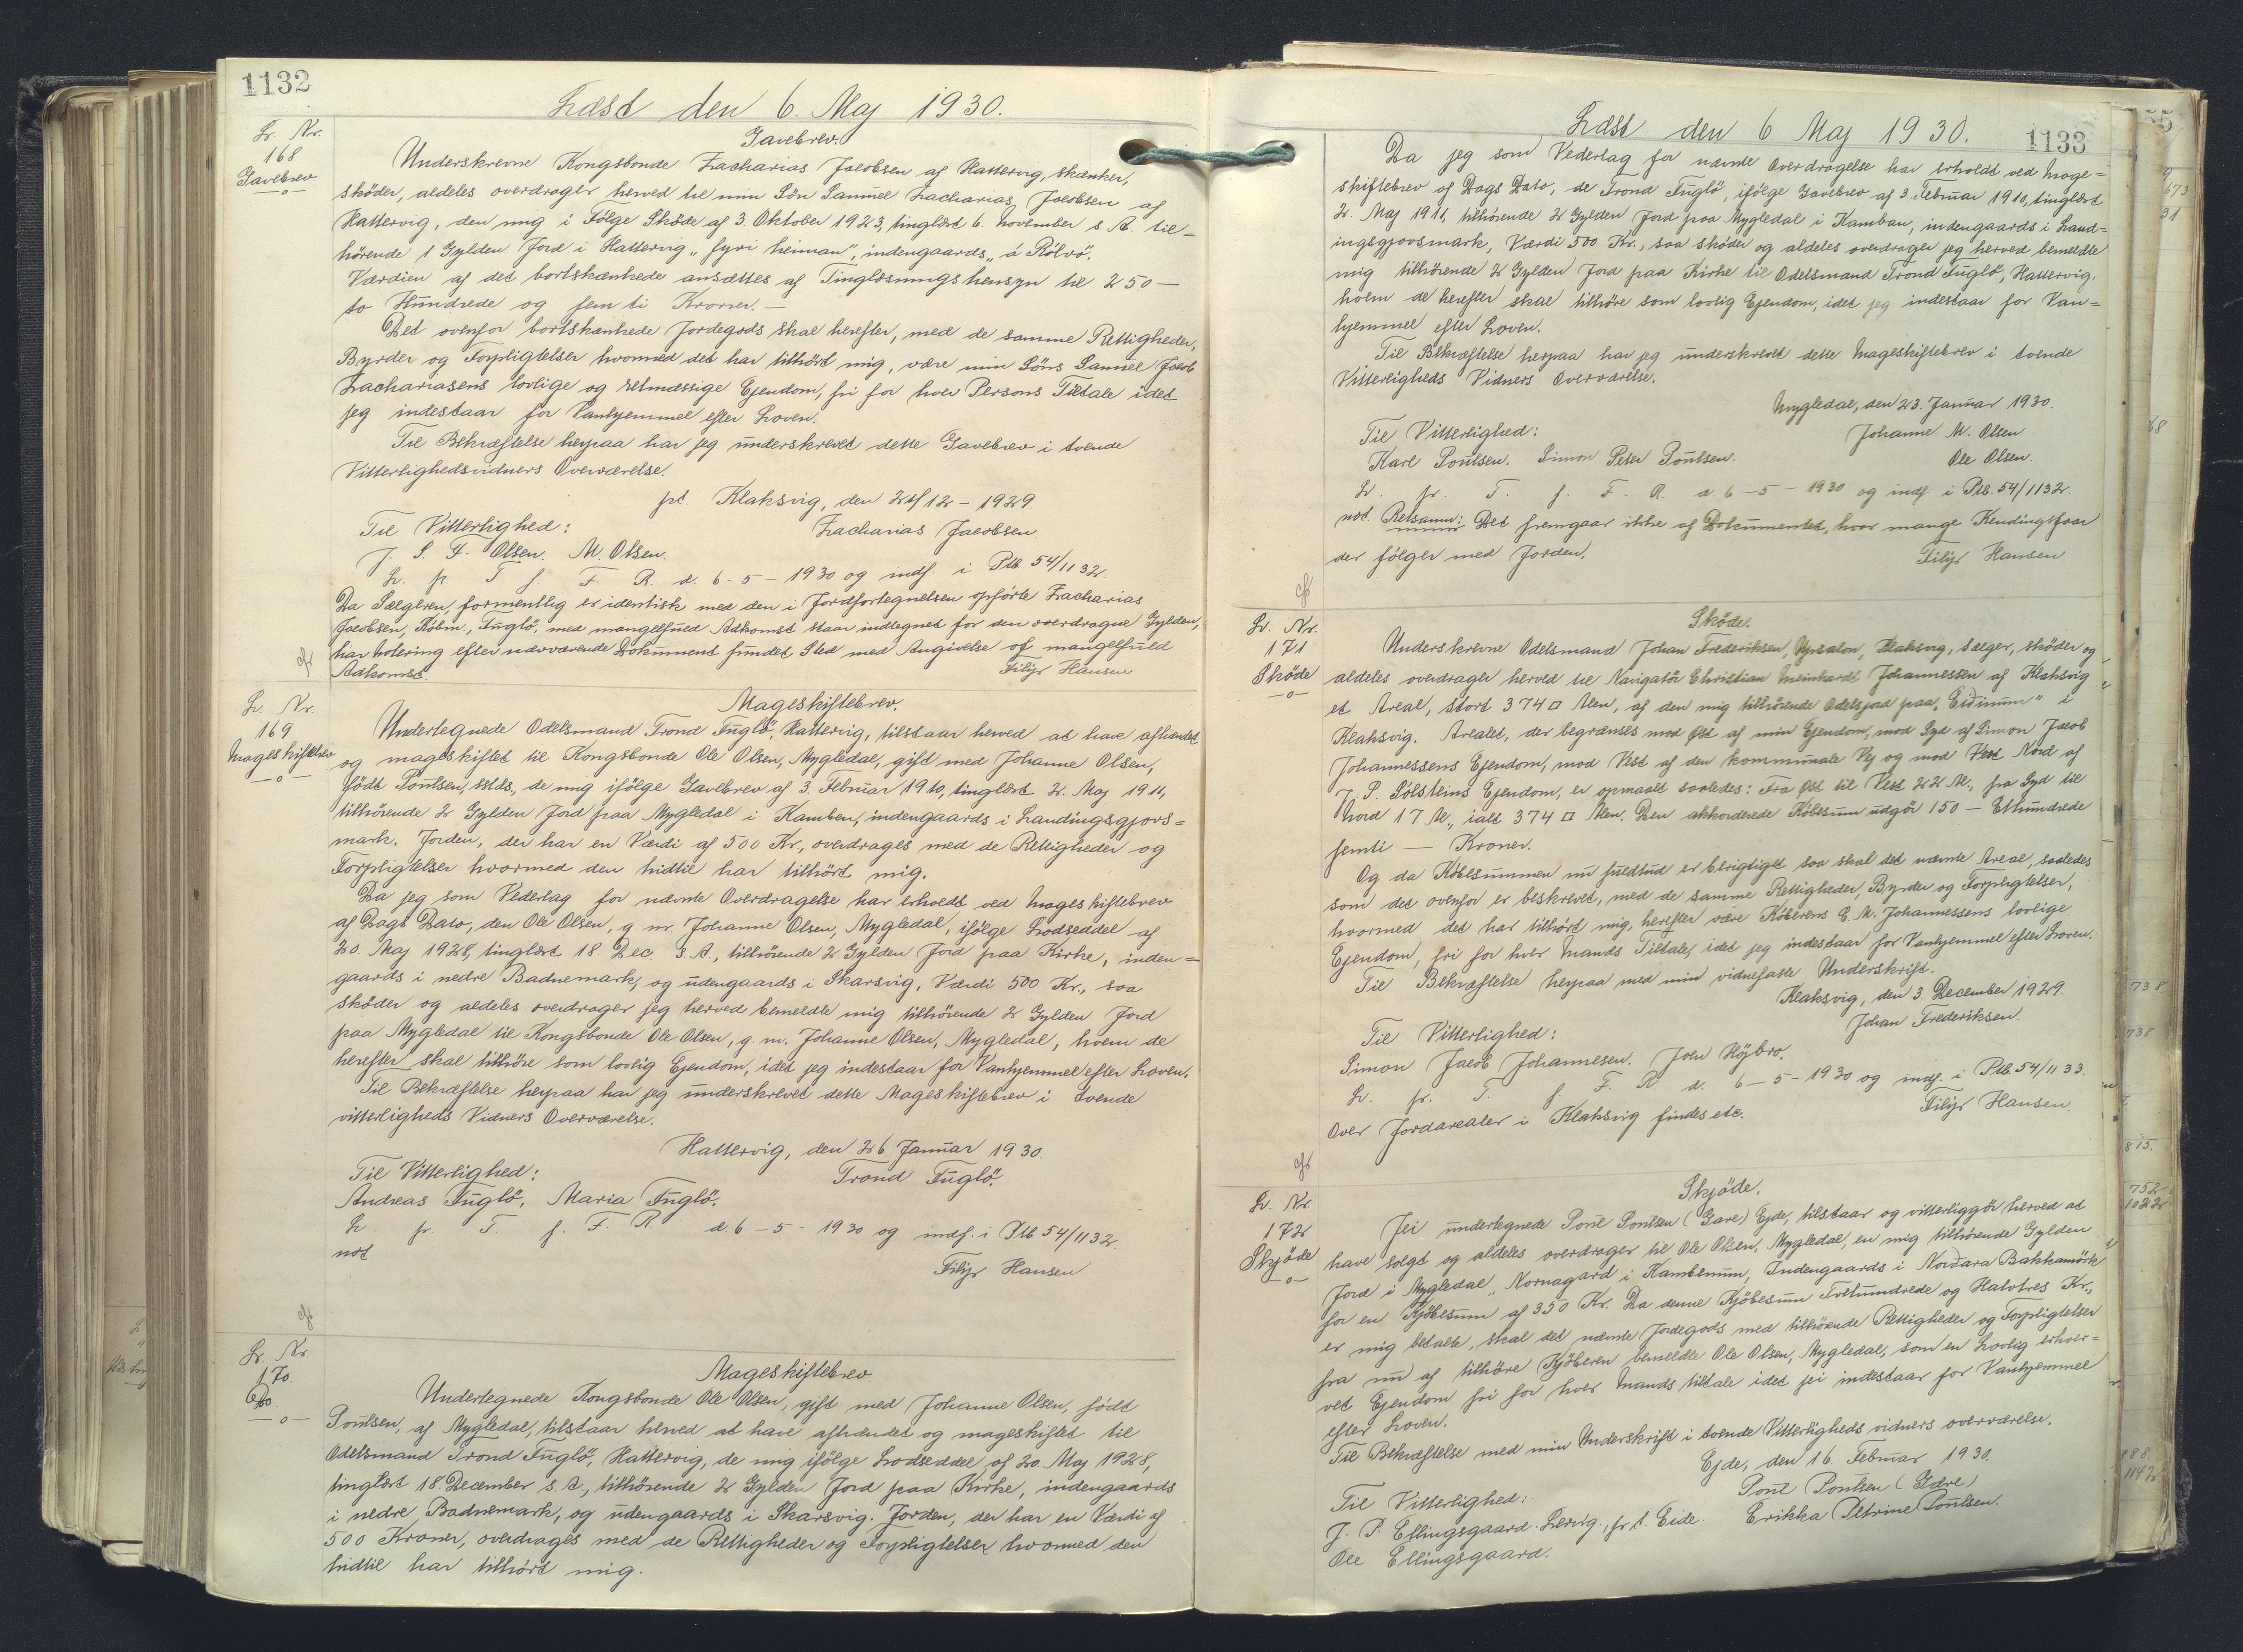 1132
Læst den 6. Maj 1930.
L. Nr.
168
Gavebrev
Gavebrev.
Underskrevne Kongsbonde Zacharias Jacobsen af Hattervig, skænker,
sköder, aldeles overdrager herved til min Sön Samuel Zacharias Jacobsen af
Hattervig, den mig i Fölge Sköde af 3. Oktober 1923, tinglæst 6. November s. A. til=
hörende 1 Gylden Jord i Hattervig „fyri heiman", indengaards „á Rólvö".
Værdien af det bortskænkede ansættes af Tinglæsningshensyn til 250 —
to Hundrede og fem ti Kroner. —
Det ovenfor bortskænkede Jordegods skal herefter, med de samme Rettigheder,
Byrder og Forpligtelser hvormed det har tilhört mig, være min Söns Samuel Jacob
Zachariasens lovlige og retmæssige Ejendom, fri for hver Persons Tiltale idet
jeg indestaar for Vanhjemmel efter Loven.
Til Bekræftelse herpaa har jeg underskrevet dette Gavebrev i tvende
Vitterlighedsvidners Overværelse.
pt. Klaksvig, den 24/12 – 1929
Til Vitterlighed: Zacharias Jacobsen.
J. S. F. Olsen. M Olsen.
L. p. T. f. F. R. d. 6 - 5 – 1930 og indf. i Ptb 54/1132
Da Sælgeren, formentlig er identisk med den i Jordfortegnelsen opförte Zacharias
Jacobsen, Kólm., Fuglö, med mangelfuld Adkomst staar indtegnet for den overdragne Gylden,
har notering efter nærværende Dokument fundet Sted med Angivelse af mangelfuld
Adkomst. Filip Hansen
L. Nr.
169
Mageskiftebrev
Mageskiftebrev.
Undertegnede Odelsmand Trond Fuglö, Hattervig, tilstaar herved at have afhændet
og mageskiftet til Kongsbonde Ole Olsen, Mygledal, gift med Johanne Olsen,
födt Poulsen, sstds., de mig ifölge Gavebrev af 3. Februar 1910, tinglæst 2. Maj 1911,
tilhörende 2 Gylden Jord paa Mygledal i Kamben, indengaards i Landingsgjovs=
mark. Jorden, der har en Værdi af 500 Kr., overdrages med de Rettigheder og
Forpligtelser hvormed den hidtil har tilhört mig.
Da jeg som Vederlag for nævnte Overdragelse har erholdt ved Mageskiftebrev
af Dags Dato, den Ole Olsen, g. m. Johanne Olsen, Mygledal, ifölge Lodseddel af
20. Maj 1928, tinglæst 18. Dec. s. A., tilhörende 2 Gylden Jord paa Kirke, inden=
gaards i nedre Badnemark, og udengaards i Skarsvig, Værdi 500 Kr., saa
sköder og aldeles overdrager jeg herved bemeldte mig tilhörende 2 Gylden Jord
paa Mygledal til Kongsbonde Ole Olsen, g. m. Johanne Olsen, Mygledal, hvem de
herefter skal tilhöre som lovlig Ejendom, idet jeg indestaar for Vanhjemmel efter Loven.
Til Bekræftelse herpaa har jeg underskrevet dette Mageskiftebrev i tvende
vitterligheds Vidners Overværelse.
Hattervig, den 26 Januar 1930.
Til Vitterlighed: Trond Fuglö.
Andreas Fuglö. Maria Fuglö.
L. p. T. f. F. R. d. 6 – 5 – 1930 og indf. i Ptb 54/1132.
not Filip Hansen
L. Nr
170.
Do.
Mageskiftebrev.
Undertegnede Kongsbonde Ole Olsen, gift med Johanne Olsen, födt
Poulsen, af Mygledal, tilstaar herved at have afhændet og mageskiftet til
Odelsmand Trond Fuglö, Hattervig, de mig ifölge Lodseddel af 20 Maj 1928,
tinglæst 18. December s. A., tilhörende 2 Gylden Jord paa Kirke, indengaards
i nedre Badnemark, og udengaards i Skarsvig. Jorden, der har en Værdi af
500 Kroner, overdrages med de Rettigheder og Forpligtelser hvormed den
hidtil har tilhört mig.
Læst den 6 Maj 1930.
1133
Da jeg som Vederlag for nævnte Overdragelse har erholdt ved Mage=
skiftebrev af Dags Dato, de Trond Fuglö, ifölge Gavebrev af 3. Februar 1910, tinglæst
2. Maj 1911, tilhörende 2 Gylden Jord paa Mygledal i Kamban, indengaards i Land=
ingsgjovsmark, Værdi 500 Kr., saa sköder og aldeles overdrager jeg herved bemeldte
mig tilhörende 2 Gylden Jord paa Kirke til Odelsmand Trond Fuglö, Hattervig,
hvem de herefter skal tilhöre som lovlig Ejendom, idet jeg indestaar for Van=
hjemmel efter Loven.
Til Bekræftelse herpaa har jeg underskrevet dette Mageskiftebrev i tvende
Vitterligheds Vidners Overværelse.
Mygledal, den 23. Januar 1930.
Til Vitterlighed: Johanne M. Olsen
Karl Poulsen. Simon Peter Poulsen. Ole Olsen.
L. p. T. f. F. R. d. 6 – 5 – 1930 og indf. i Ptb. 54/1132.
not. Retsanm: Det fremgaar ikke af Dokumentet, hvor mange Kendingsfaar
der fölger med Jorden. Filip Hansen
L. Nr.
171
Sköde
Sköde.
Underskrevne Odelsmand Johan Frederiksen, Uprsalon, Klaksvig, sælger, sköder og
aldeles overdrager herved til Navigatör Christian Meinhardt Johannessen af Klaksvig
et Areal, stort 374 □ Alen, af den mig tilhörende Odelsjord paa „Eidinum" i
Klaksvig. Arealet, der begrænses mod Øst af min Ejendom, mod Syd af Simon Jacob
Johannessens Ejendom, mod Vest af den kommunale Vej og mod Vest Nord af
J. P. Sólsteins Ejendom, er opmaalt saaledes: Fra Øst til Vest 22 Al., fra Syd til
Nord 17 Al., ialt 374 □ Alen. Den akkorderede Köbesum udgör 150 — Ethundrede
femti — Kroner.
Og da Köbesummen nu fuldtud er berigtiget saa skal det nævnte Areal, saaledes
som det ovenfor er beskrevet, med de samme Rettigheder, Byrder og Forpligtelser,
hvormed det har tilhört mig, herefter være Köberens C. M. Johannessens lovlige
Ejendom, fri for hver Mands Tiltale, idet jeg indestaar for Vanhjemmel efter Loven.
Til Bekræftelse herpaa med min vidnefaste Underskrift.
Klaksvig, den 3. December 1929.
Til Vitterlighed: Johan Frederiksen.
Simon Jacob Johannesen. Joen Höjbro.
L. p. T. f. F. R. d. 6 – 5 – 1930 og indf. i Ptb. 54/1133.
Over Jordarealer i Klaksvig findes etc. Filip Hansen
L. Nr
172
Skjöde
Skjöde.
Jei undertegnede Poul Poulsen (Gare) Ejde, tilstaar og vitterliggör herved at
have solgt og aldeles overdrager til Ole Olsen, Mygledal, en mig tilhörende Gylden
Jord i Mygledal „Nornagard i Kambenum, Indengaards i Nordara Bakkamörk"
for en Kjöbesum af 350 Kr. Da denne Kjöbesum Trehundrede og Halvtres Kr.,
er mig betalte, skal det nævnte Jordegods med tilhörende Rettigheder og Forpligtelser
fra nu af tilhöre Kjöberen bemeldte Ole Olsen, Mygledal, som en Lovlig erhver=
vet Ejendom fri for hver Mands tiltale idet jei indestaar for Vanhjemmel
efter Loven.
Til Bekræftelse med min Underskrift i tvende Vitterligheds vidners overværelse.
Ejde, den 16. Februar 1930.
Til Vitterlighed: Poul Poulsen (Gare)
J. P. Ellingsgaard. Lervig., p. t. Eide. Erikka Petrine Poulsen.
Ole Ellingsgaard.